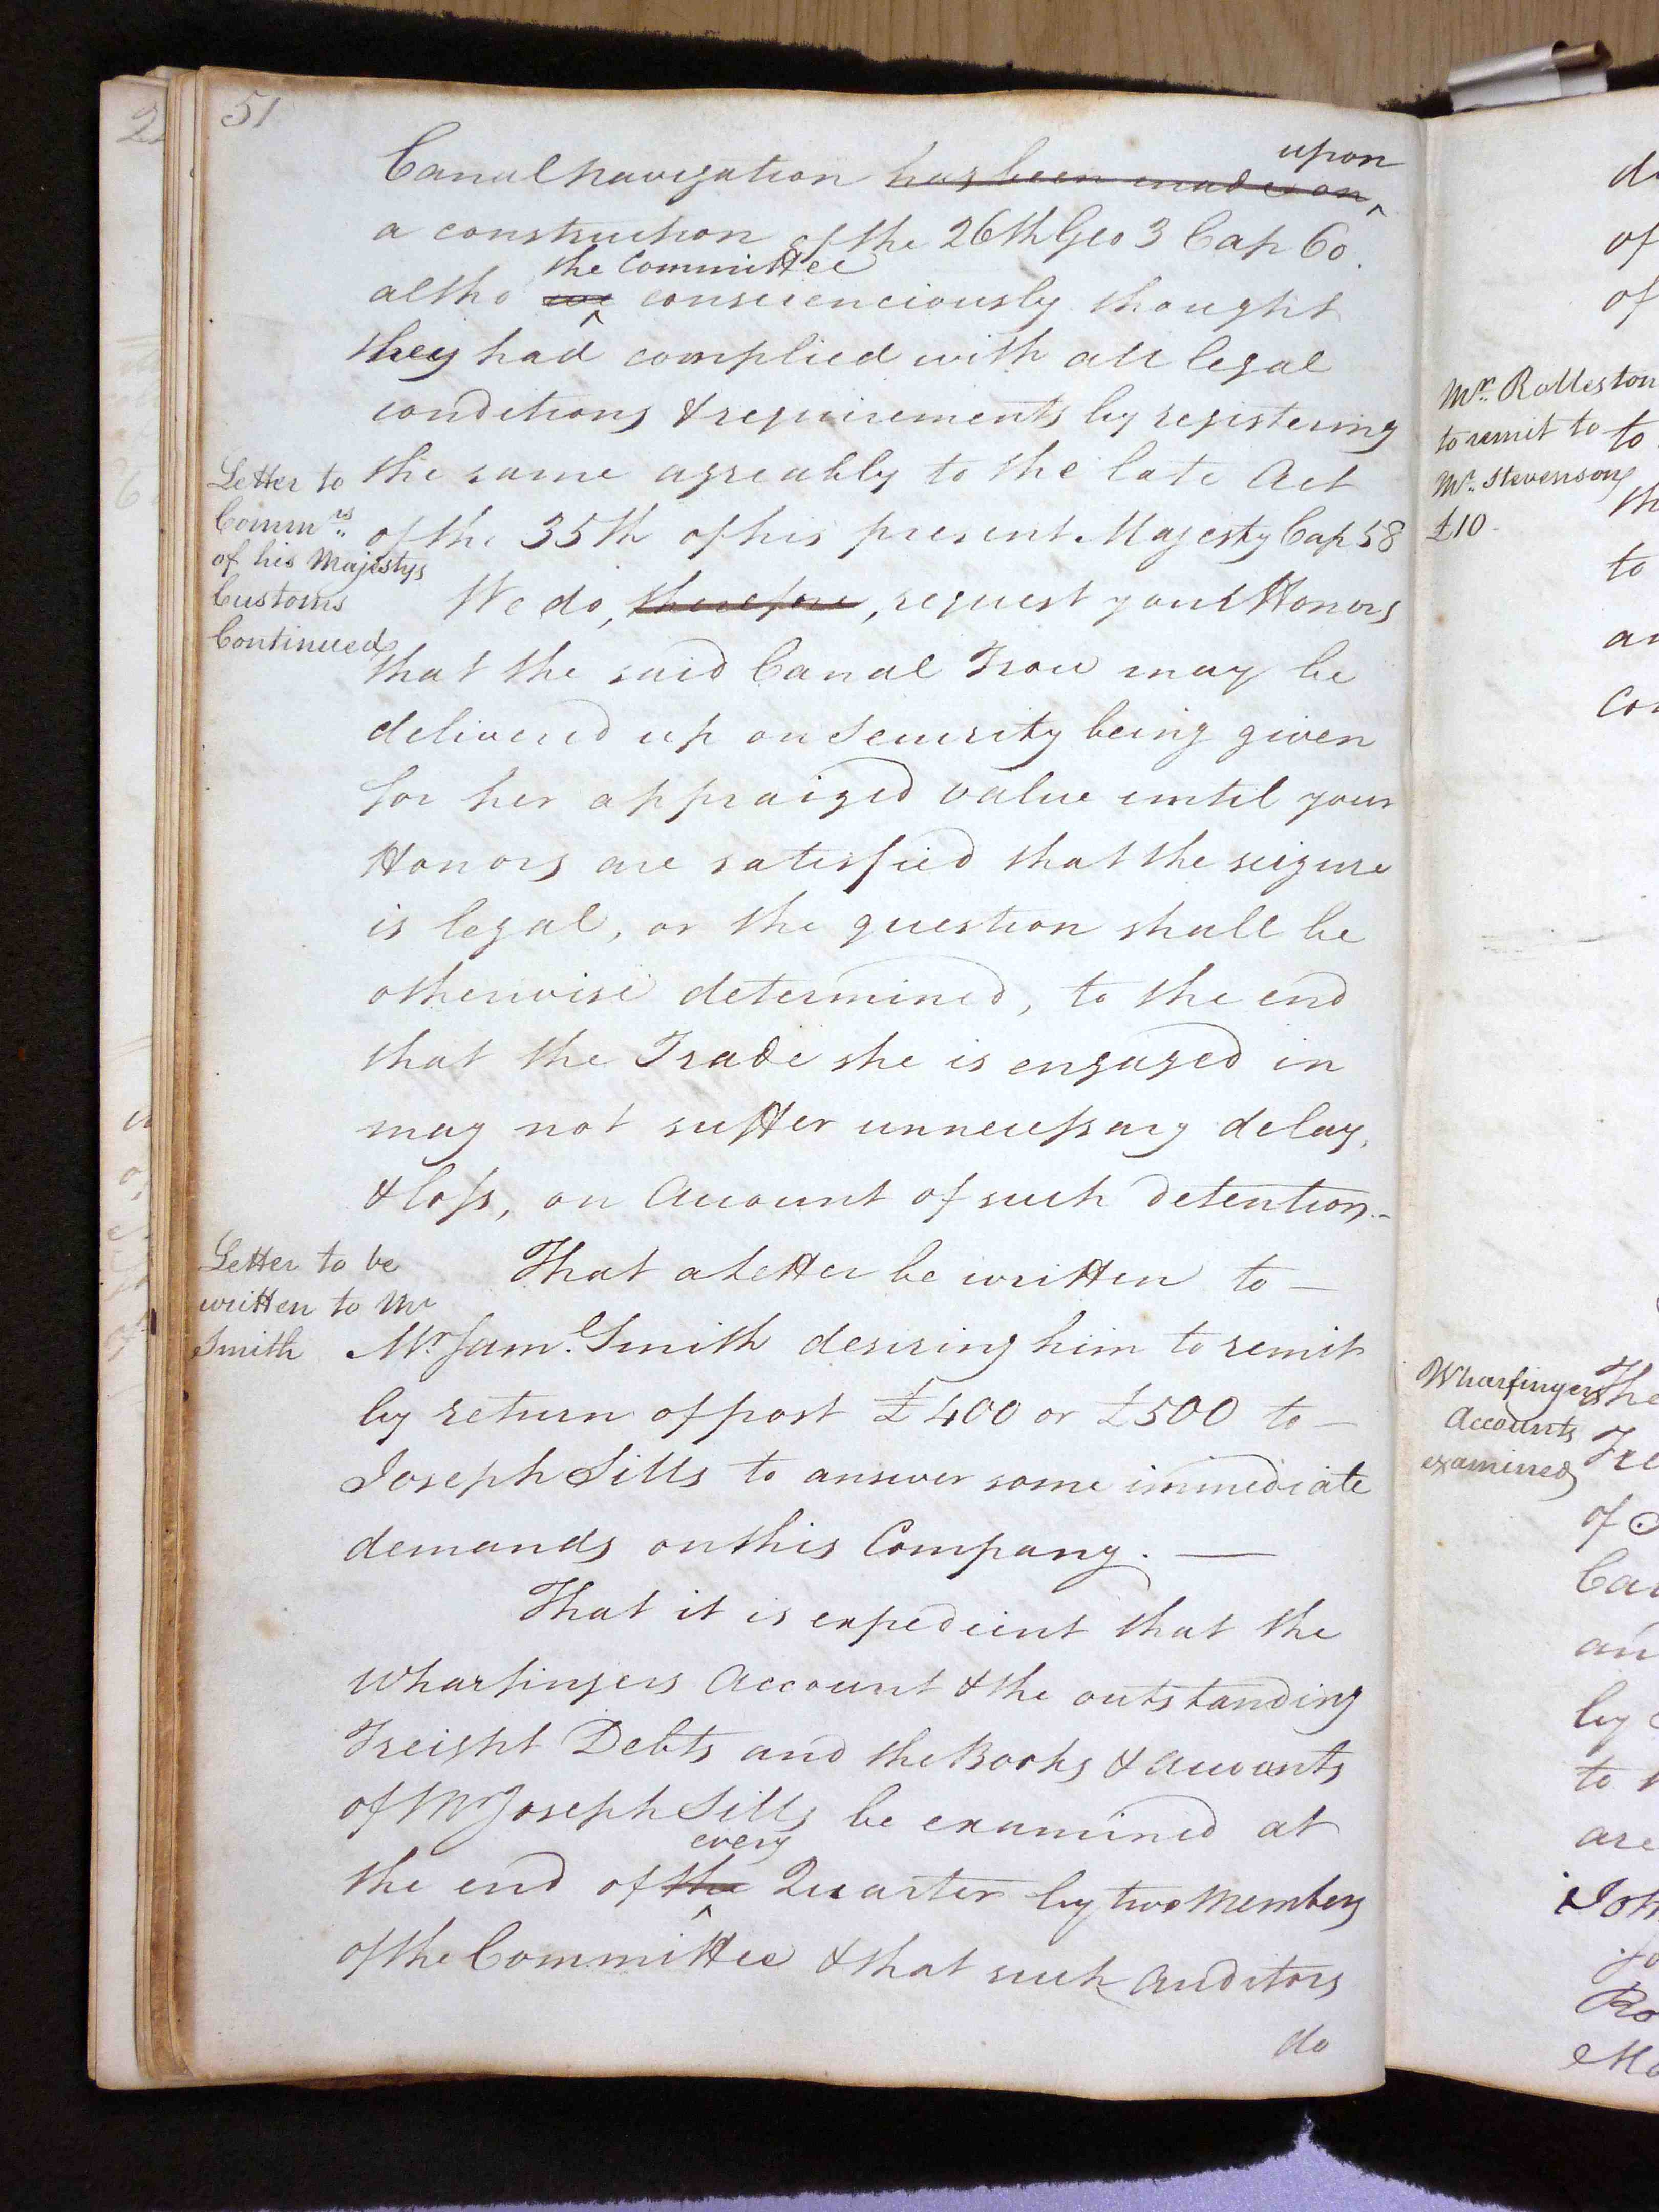 51
Canal navigation has been made on upon
a construction of the 26th Geo 3 Cap 60.
altho' we the Committee conscienciously thought
they had complied with all legal
conditions & requirements by registering
the same agreably to the late Act
of the 35th of his present Majesty Cap 58
Letter to
Commrs
of his Majestys
Customs
Continued
We do, therefore, request your Honors
that the said Canal Trow may be
delivered up on Security being given
for her appraized value until your
Honors are satisfied that the seizure
is legal, or the question shall be
otherwise determined, to the end
that the Trade she is engaged in
may not suffer unnecessary delay,
& loss, on Account of such detention.-
Letter to be
written to Mr
Smith
That a Letter be written to —
Mr. Saml. Smith desiring him to remit
by return of post £400 or £500 to —
Joseph Sills to answer some immediate
demands on this Company. —
That it is expedient that the
Wharfingers Account & the outstanding
Freight Debts and the Books & Accounts
of Mr Joseph Sills be examined at
the end of the every Quarter by two Members
of the Committee & that such Auditors
do
Mr. Rolleston
to remit to
Mr. Stevenson
£10-
Wharfingers
Accounts
examined